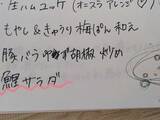 生ハムユッケ(オニスラアレンジ♡)
もやし&きゅうり梅ぽん和え
豚バラゆず胡椒炒め
鱧サラダ